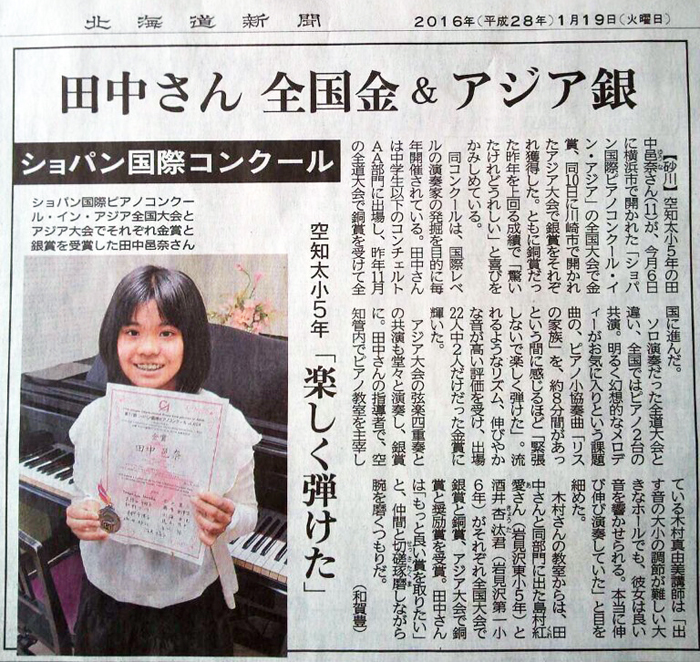 北海道新聞
2016年(平成28年)1月19日(火曜日)
田中さん 全国金&アジア銀
ショパン国際コンクール
ショパン国際ピアノコンクー
ル・イン・アジア全国大会と
アジア大会でそれぞれ金賞と
銀賞を受賞した田中邑奈さん
空知太小5年「楽しく弾けた」
【砂川】空知太小5年の田
中邑奈さん(11)が、今月6日
に横浜市で開かれた「ショパ
ン国際ピアノコンクール・イ
ン・アジア」の全国大会で金
賞、同10日に川崎市で開かれ
たアジア大会で銀賞をそれぞ
れ獲得した。ともに銅賞だっ
た昨年を上回る成績で「驚い
たけれどうれしい」と喜びを
かみしめている。
同コンクールは、国際レベ
ルの演奏家の発掘を目的に毎
年開催されている。田中さん
は中学生以下のコンチェルト
AA部門に出場し、昨年11月
の全道大会で銅賞を受けて全
国に進んだ。
ソロ演奏だった全道大会と
違い、全国ではピアノ2台の
共演。明るく幻想的なメロデ
ィーがお気に入りという課題
曲の、ピアノ小協奏曲「リス
の家族」を、約8分間があっ
という間に感じるほど「緊張
しないで楽しく弾けた」。流
れるようなリズム、伸びやか
な音が高い評価を受け、出場
22人中2人だけだった金賞に
輝いた。
アジア大会の弦楽四重奏と
の共演も堂々と演奏し、銀賞
に。田中さんの指導者で、空
知管内でピアノ教室を主宰し
ている木村真由美講師は「出
す音の大小の調節が難しい大
きなホールでも、彼女は良い
音を響かせられる。本当に伸
び伸び演奏していた」と目を
細めた。
木村さんの教室からは、田
中さんと同部門に出た島村紅
愛さん(岩見沢東小5年)と
酒井杏汰君(岩見沢第一小
6年)がそれぞれ全国大会で
銀賞と銅賞、アジア大会で銅
賞と奨励賞を受賞。田中さん
は「もっと良い賞を取りたい」
と、仲間と切磋琢磨しながら
腕を磨くつもりだ。
(和賀豊)
金賞
田中邑奈